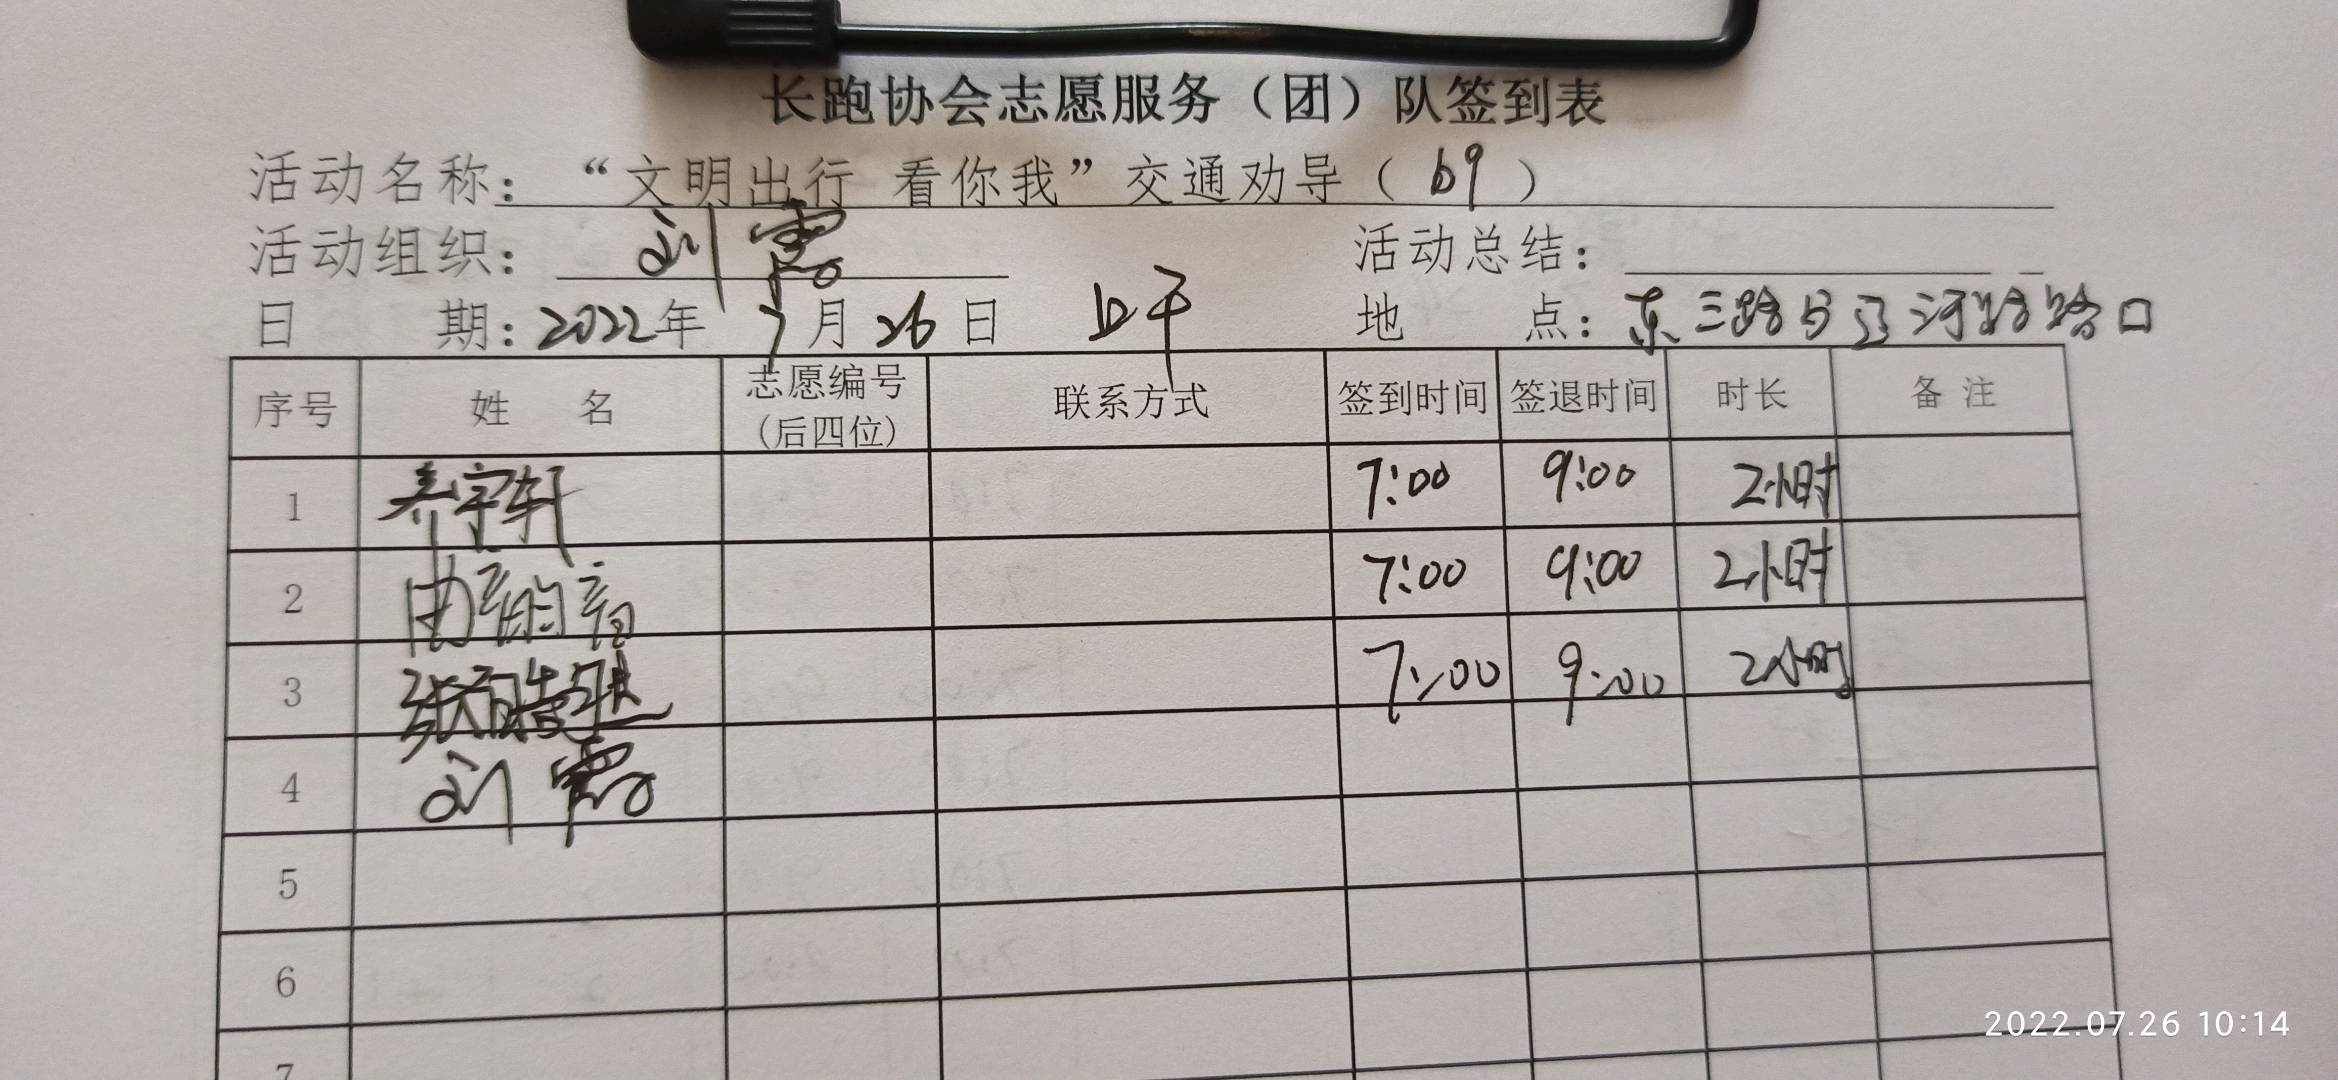 长跑协会志愿服务（团）队签到表
活动名称：“文明出行 看你我”交通劝导（69）
活动组织：刘霞 活动总结：
日 期：2022年7月26日 上午 地 点：东三路与辽河路路口
序号 姓 名 志愿编号（后四位） 联系方式 签到时间 签退时间 时长 备 注
1 乔宇轩 7:00 9:00 2小时
2 7:00 9:00 2小时
3 7:00 9:00 2小时
4 刘霞
5
6
7
2022.07.26 10:14